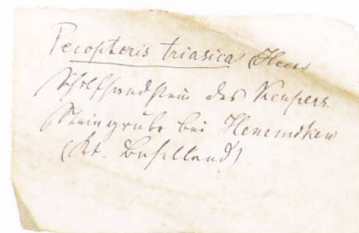 Pecopteris triasica Heer
Schilfsandstein des Keupers
Steingrube bei Hemmiken
(Kt. Baselland).